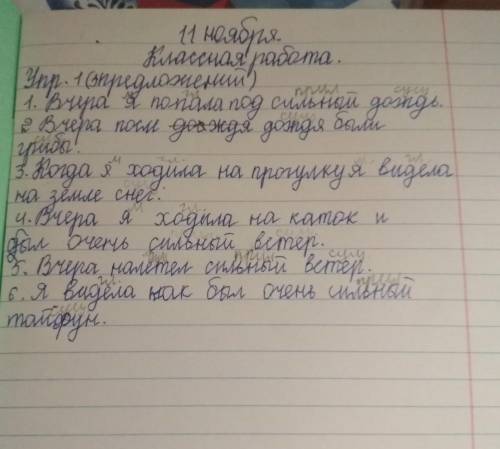 11 ноября.
Классная работа.
Упр. 1 (предложений)
1. Вчера я попала под сильный дождь.
2 Вчера после дождя дождя были
грибы.
3. Когда я ходила на прогулку я видела
на земле снег.
4. Вчера я ходила на каток и
был очень сильный ветер.
5. Вчера налетел сильный ветер.
6. Я видела как был очень сильный
тайфун.